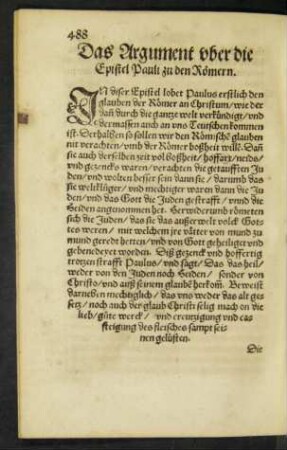 488
Das Argument vber die
Epistel Pauli zu den Römern.
IN diser Epistel lobet Paulus erstlich den
glauben der Römer an Christum/ wie der
dañ durch die gantze welt verkündigt/ vnd
dermassen auch an vns Teutschen kommen
ist. Derhalben so sollen wir den Römische glauben
nit verachten/ vmb der Römer boßheit will. Dañ
sie auch derselben zeit vol boßheit/ hoffart/ neids/
vnd gezencks waren/ verachten die getaufften Ju
den/ vnd wolten besser sein dann sie/ darumb das
sie weltklüger/ vnd mechtiger waren dann die Ju
den/ vnd das Gott die Juden gestrafft/ vnnd die
Heiden angenommen het. Herwiderumb rhometen
sich die Juden/ das sie das außerwelt volck Got=
tes weren/ mit welchem jre vätter von mund zu
mund geredt hetten/ vnd von Gott geheiliget vnd
gebenedeyet worden. Diß gezenck vnd hoffertig
trotzen strafft Paulus/ vnd sagt/ Das das heil/
weder von den Juden noch Heiden/ sonder von
Christo/ vnd auß seinem glaubē herkom̄. Beweist
darneben mechtiglich/ das vns weder das alt ges
setz/ noch auch der glaub Christi selig mach on die
lieb/ gūte werck/ vnd creutzigung vnd cas
steigung des fleisches sampt sei=
nen gelüsten.
Die